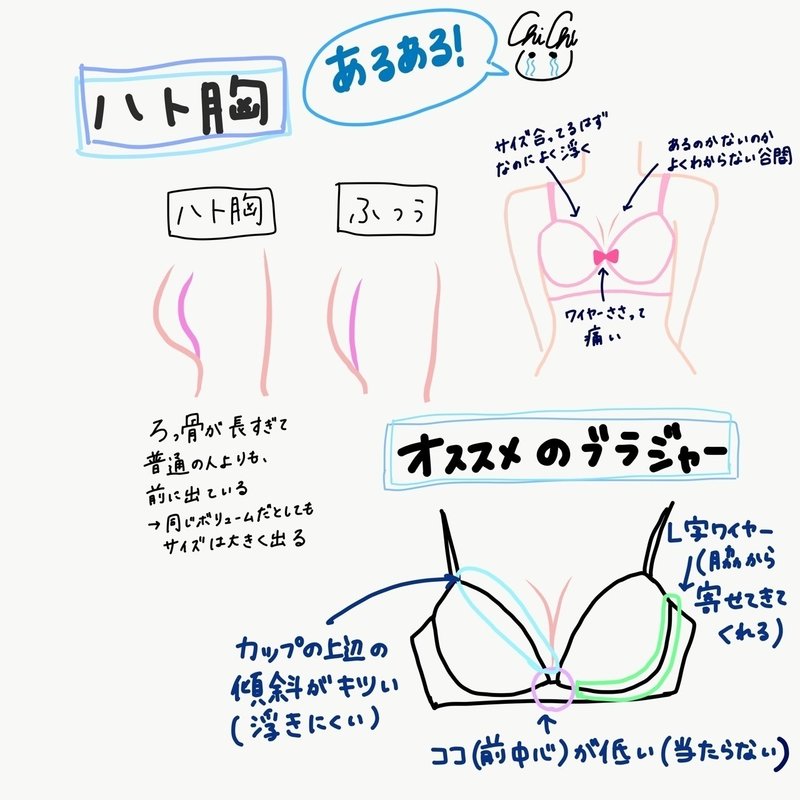 ハト胸
あるある!
ChiChi
サイズ合ってるはず
なのによく浮く
あるのかないのか
よくわからない谷間
ハト胸
ふつう
ワイヤーささって
痛い
ろっ骨が長すぎて
普通の人よりも、
前に出ている
→同じボリュームだとしても
サイズは大きく出る
オススメのブラジャー
L字ワイヤー
(脇から
寄せてきて
くれる)
カップの上辺の
傾斜がキツい
(浮きにくい)
ココ(前中心)が低い(当たらない)